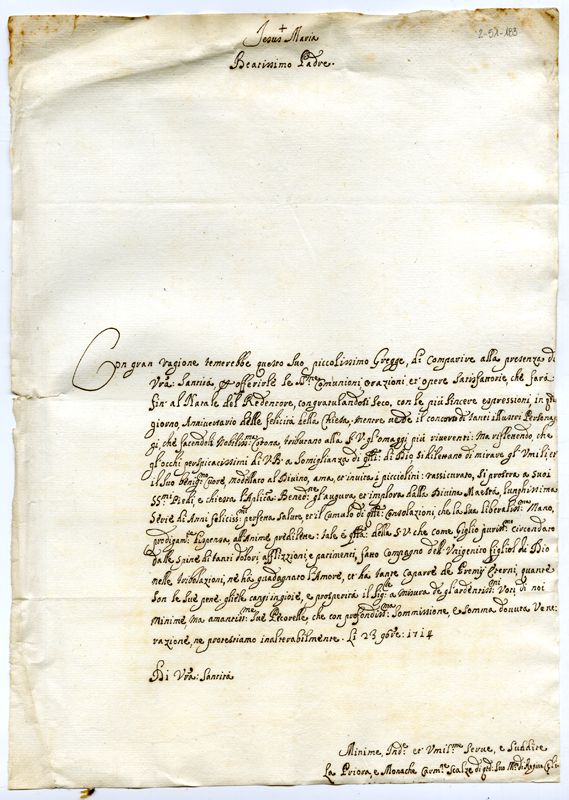 2-51-183
Jesus + Maria
Beatissimo Padre.
Con gran ragione temerebbe questo Suo piccolissimo Gregge, di comparire alla presenza di
Vrã: Santità, et offerirle le Sme Comunioni orazioni, et opere Satisfattorie, che farà
fin' al Natale del Redentore, congratulandosi Seco, con le più Sincere espressioni in
giorno, Anniversario delle felicità della Chiesa, mentre vede il concorso di tanti illustri Personag
gi, che facendoli Nobiliss: Corona, tributano alla S. V. gl'omaggi più riverenti: Ma riflettendo, che
gl'occhi perspicacissimi di V. B. a Somiglianza di di Dio Si dilettano di mirare gl'Umili, et
il Suo Cuore, modellato al Divino, ama, et invita i picciolini: rassicurato, Si prostra a Suoi
SSmi Piedi, e chiesta l'Aplica Benedne gl'augura, et implora dalla Divina Maestà, lunghissima
Serie di Anni felicissmi perfetta Salute, et il Cumulo di Consolazioni che la Sua liberalissma Mano,
prodigamte dispensa, all'Anime predilette: tale è della S. V. che come Giglio purissmo circondato
dalle Spine di tanti dolori afflizzioni, e patimenti, fatto Compagno dell'Unigenito figliol di Dio
nelle tribolazioni, ne ha guadagnato l'Amore, et ha tante Caparre de Premij Eterni, quante
Son le Sue pene, gliele cangi in gioie, e prosperità il Sigre a misura de gl'ardentissmi Voti di noi
Minime, ma amantissme Sue Pecorelle, che con profondissma Sommissione, e Somma dovuta Vene:
razione, ne protestiamo inalterabilmente. Li 23 9bre: 1714
Di Vrã: Santità
Minime, et Umilme Serve, e Suddite
La Priora, e Monache Carme Scalze di Suo di Regina Cęli